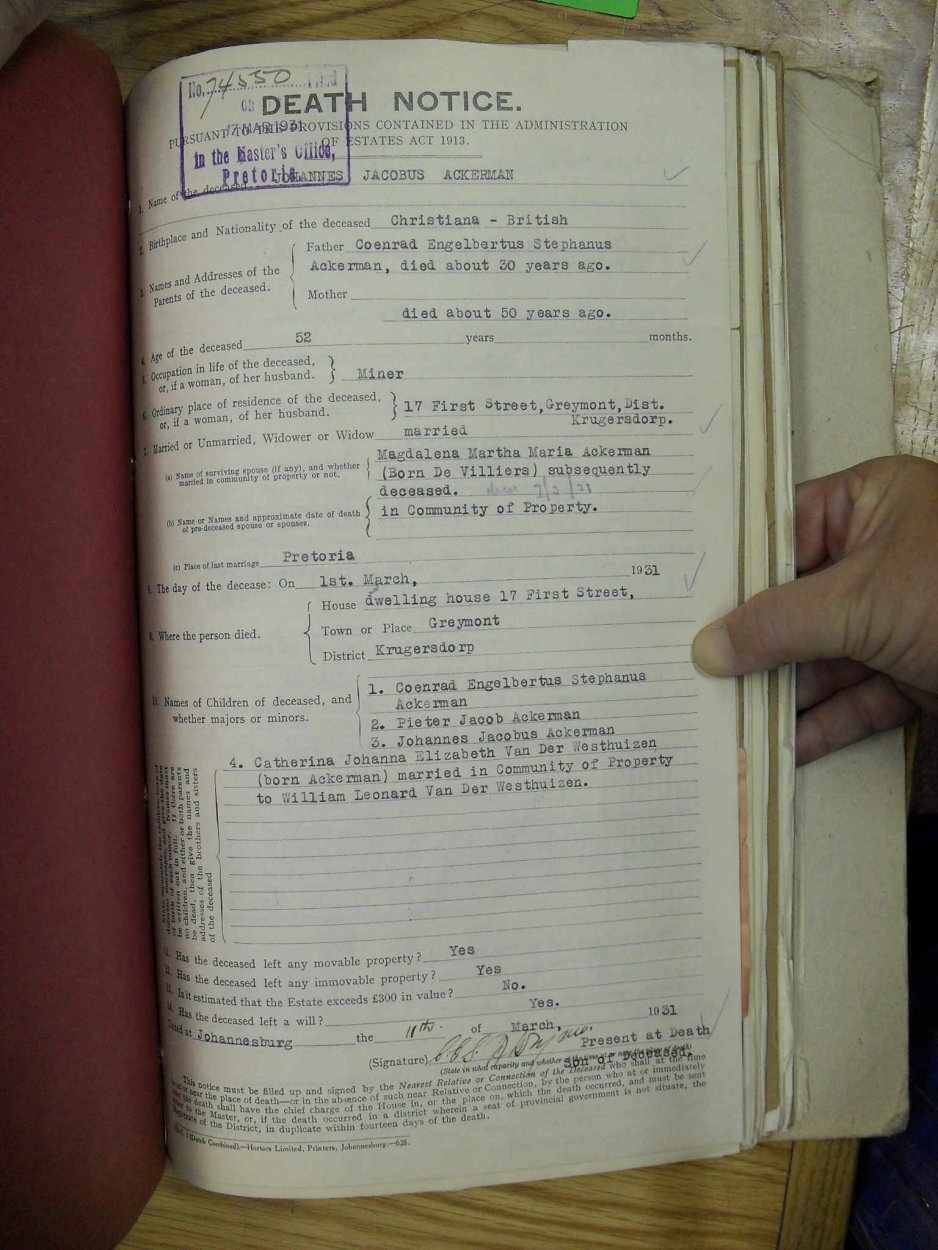 No. 74550 Filed
on
17 MAR 1931
in the Master's Office,
Pretoria.
DEATH NOTICE.
PURSUANT TO THE PROVISIONS CONTAINED IN THE ADMINISTRATION
OF ESTATES ACT 1913.
1. Name of the deceased JOHANNES JACOBUS ACKERMAN
2. Birthplace and Nationality of the deceased Christiana - British
3. Names and Addresses of the Parents of the deceased.
Father Coenrad Engelbertus Stephanus
Ackerman, died about 30 years ago.
Mother
died about 50 years ago.
4. Age of the deceased 52 years months.
5. Occupation in life of the deceased,
or, if a woman, of her husband. Miner
6. Ordinary place of residence of the deceased,
or, if a woman, of her husband. 17 First Street,Greymont,Dist.
Krugersdorp.
7. Married or Unmarried, Widower or Widow married
(a) Name of surviving spouse (if any), and whether
married in community of property or not.
Magdalena Martha Maria Ackerman
(Born De Villiers) subsequently
deceased.
(b) Name or Names and approximate date of death
of pre-deceased spouse or spouses.
in Community of Property.
(c) Place of last marriage Pretoria
8. The day of the decease: On 1st. March, 1931
9. Where the person died.
House dwelling house 17 First Street,
Town or Place Greymont
District Krugersdorp
10. Names of Children of deceased, and
whether majors or minors.
1. Coenrad Engelbertus Stephanus
Ackerman
2. Pieter Jacob Ackerman
3. Johannes Jacobus Ackerman
4. Catherina Johanna Elizabeth Van Der Westhuizen
(born Ackerman) married in Community of Property
to William Leonard Van Der Westhuizen.
be written out in full. If there are
no children, and either or both parents
be dead, then give the names and
addresses of the brothers and sisters
of the deceased
11. Has the deceased left any movable property? Yes
12. Has the deceased left any immovable property? Yes
13. Is it estimated that the Estate exceeds £300 in value? No.
14. Has the deceased left a will? Yes.
Dated at Johannesburg the 11th. of March, 1931
(Signature) Present at Death
Son of Deceased.
This notice must be filled up and signed by the Nearest Relative or Connection of the Deceased who shall at the time
be at or near the place of death—or in the absence of such near Relative or Connection, by the person who at or immediately
after the death shall have the chief charge of the House in, or the place on, which the death occurred, and must be sent
either to the Master, or, if the death occurred in a district wherein a seat of provincial government is not situate, the
Magistrate of the District, in duplicate within fourteen days of the death.
Horters Limited, Printers, Johannesburg.—628.